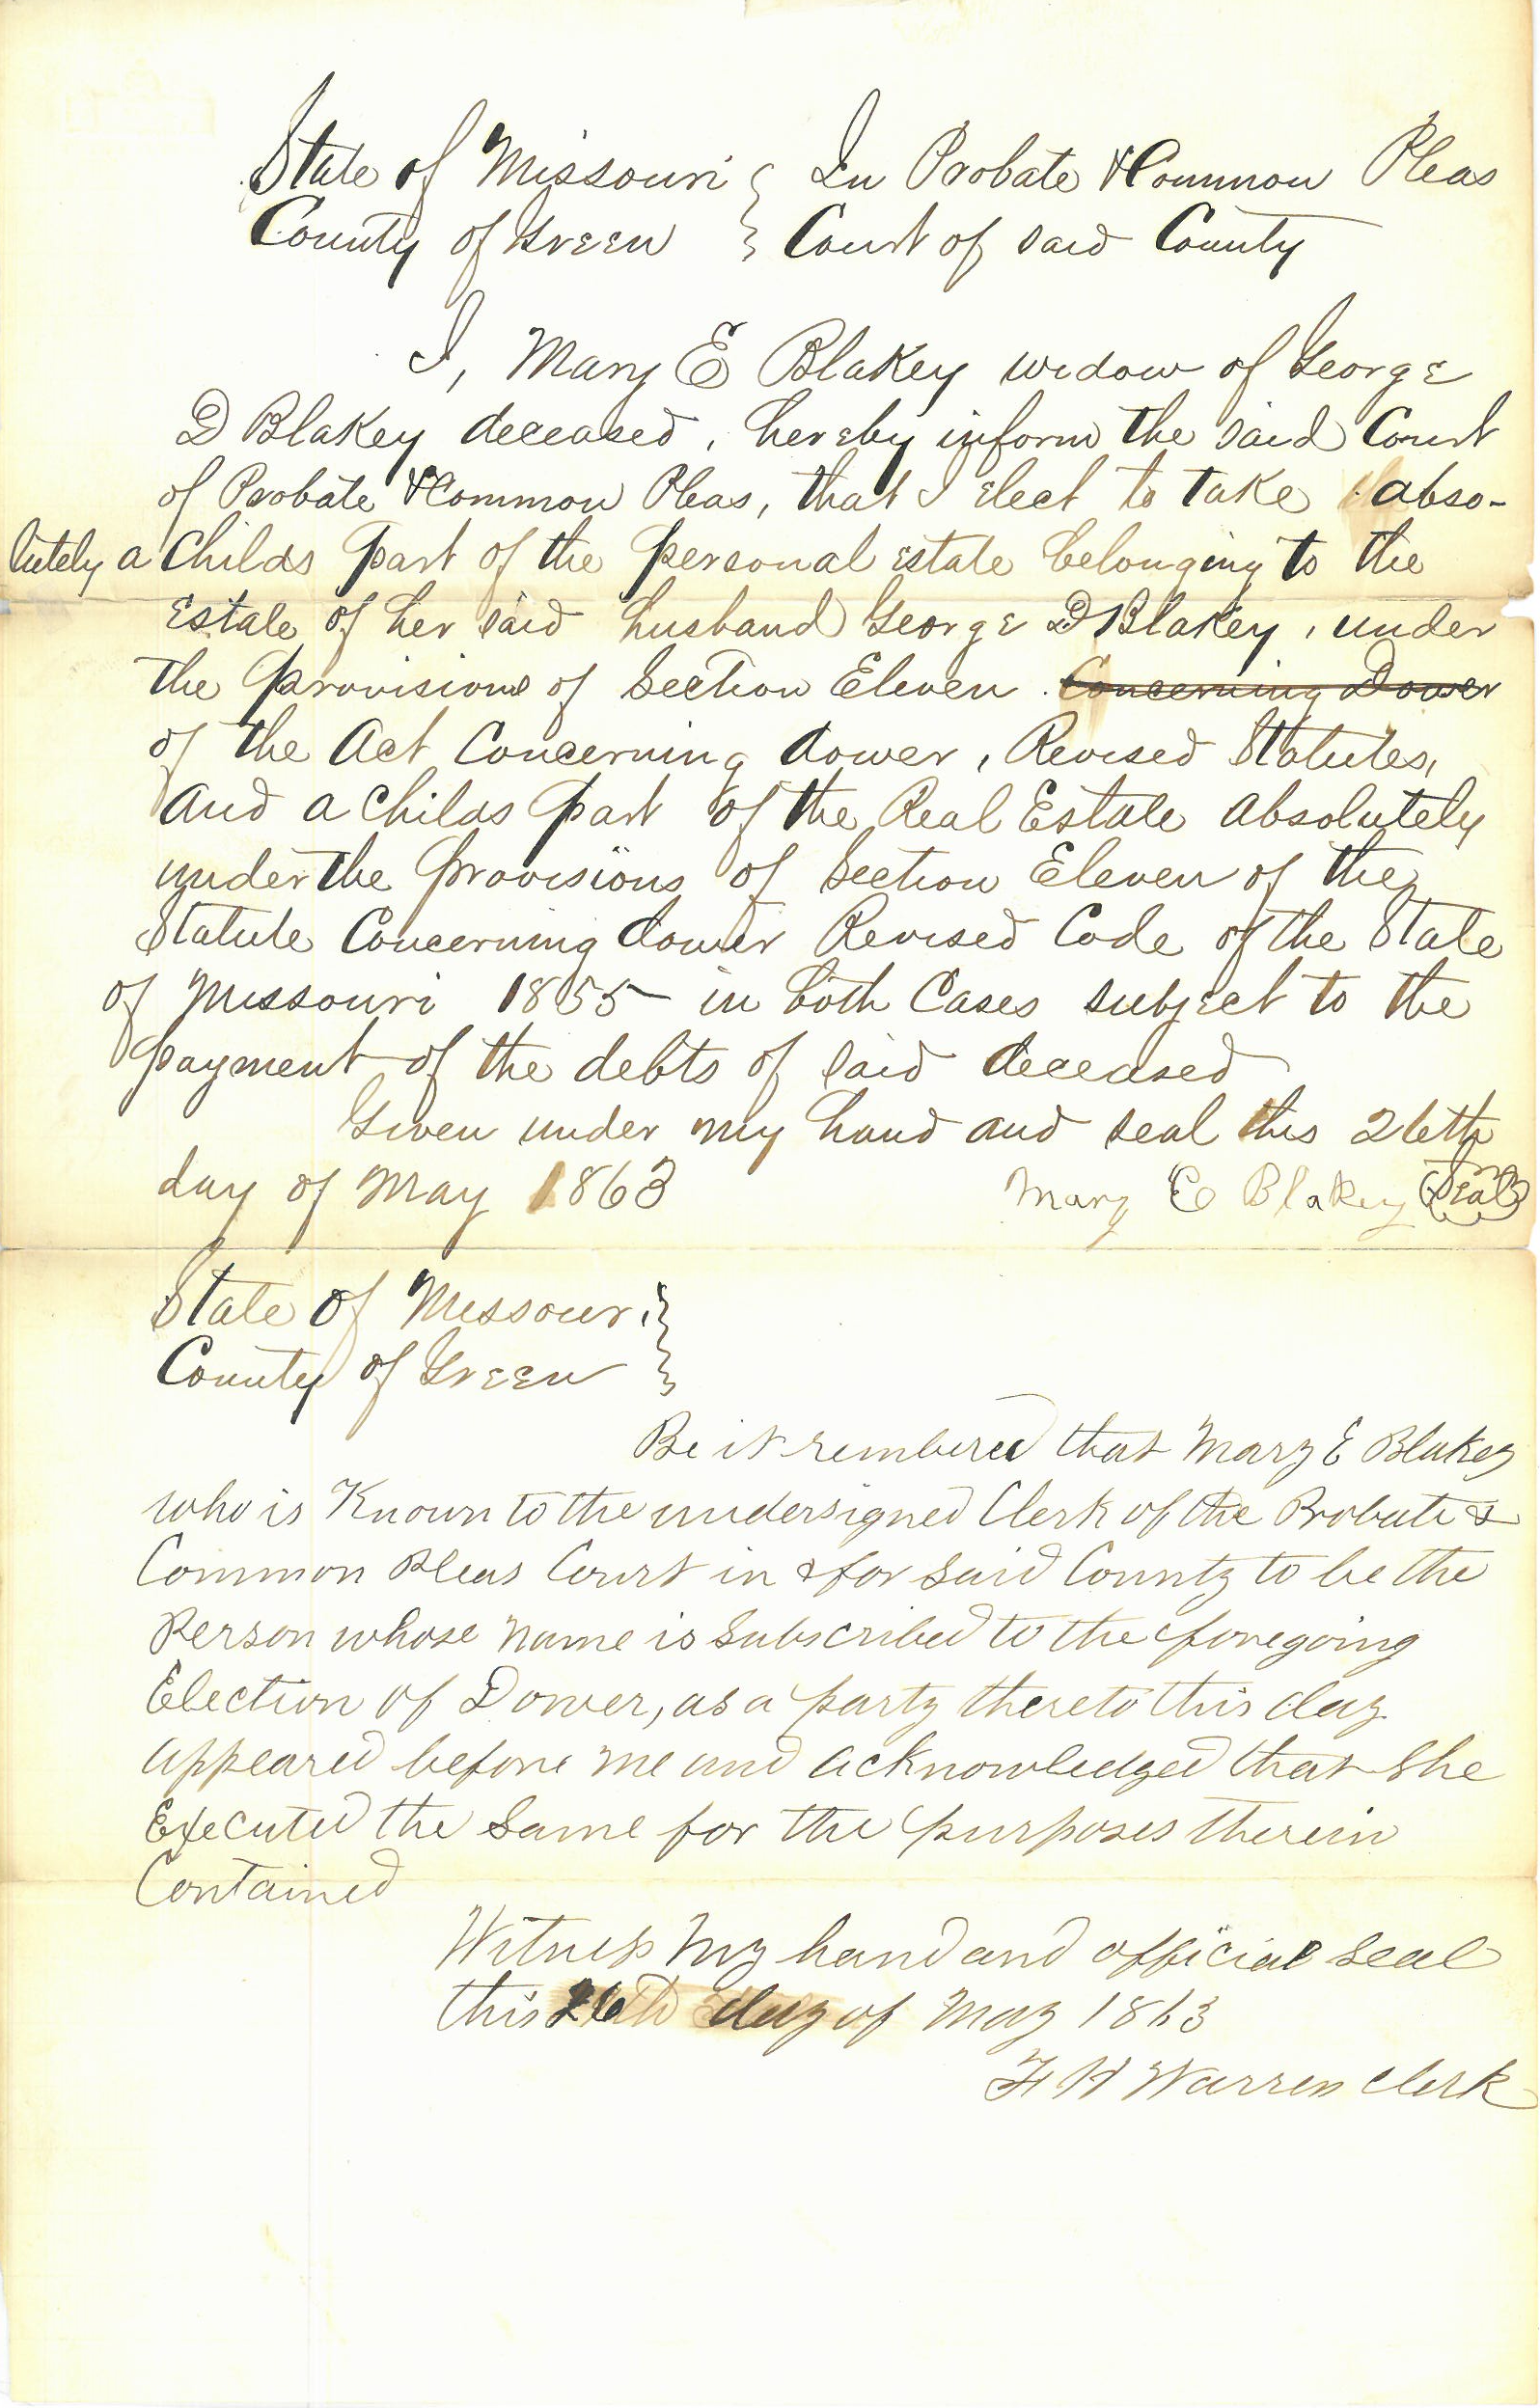 State of Missouri } In Probate & Common Pleas
County of Green } Court of said County
I, Mary E Blakey widow of George
D Blakey deceased, hereby inform the said Court
of Probate & Common Pleas, that I elect to take abso-
lutely a Childs part of the personal estate belonging to the
Estate of her said husband George D Blakey, under
the provisions of Section Eleven Concerning Dower
of the Act Concerning dower, Revised Statutes,
and a Childs part of the Real Estate absolutely
under the provisions of Section Eleven of the
Statute Concerning dower Revised Code of the State
of Missouri 1855 in both Cases subject to the
payment of the debts of said deceased
Given under my hand and seal this 26th
day of May 1863 Mary E Blakey (Seal)
State of Missouri }
County of Green }
Be it rembered that Mary E Blakey
who is Known to the undersigned Clerk of the Probate &
Common Pleas Court in & for said County to be the
Person whose name is Subscribed to the foregoing
Election of Dower, as a party thereto this day
appeared before me and acknowledged that She
Executed the Same for the purposes therein
Contained
Witness My hand and official seal
this 26th day of May 1863
F H Warren Clerk